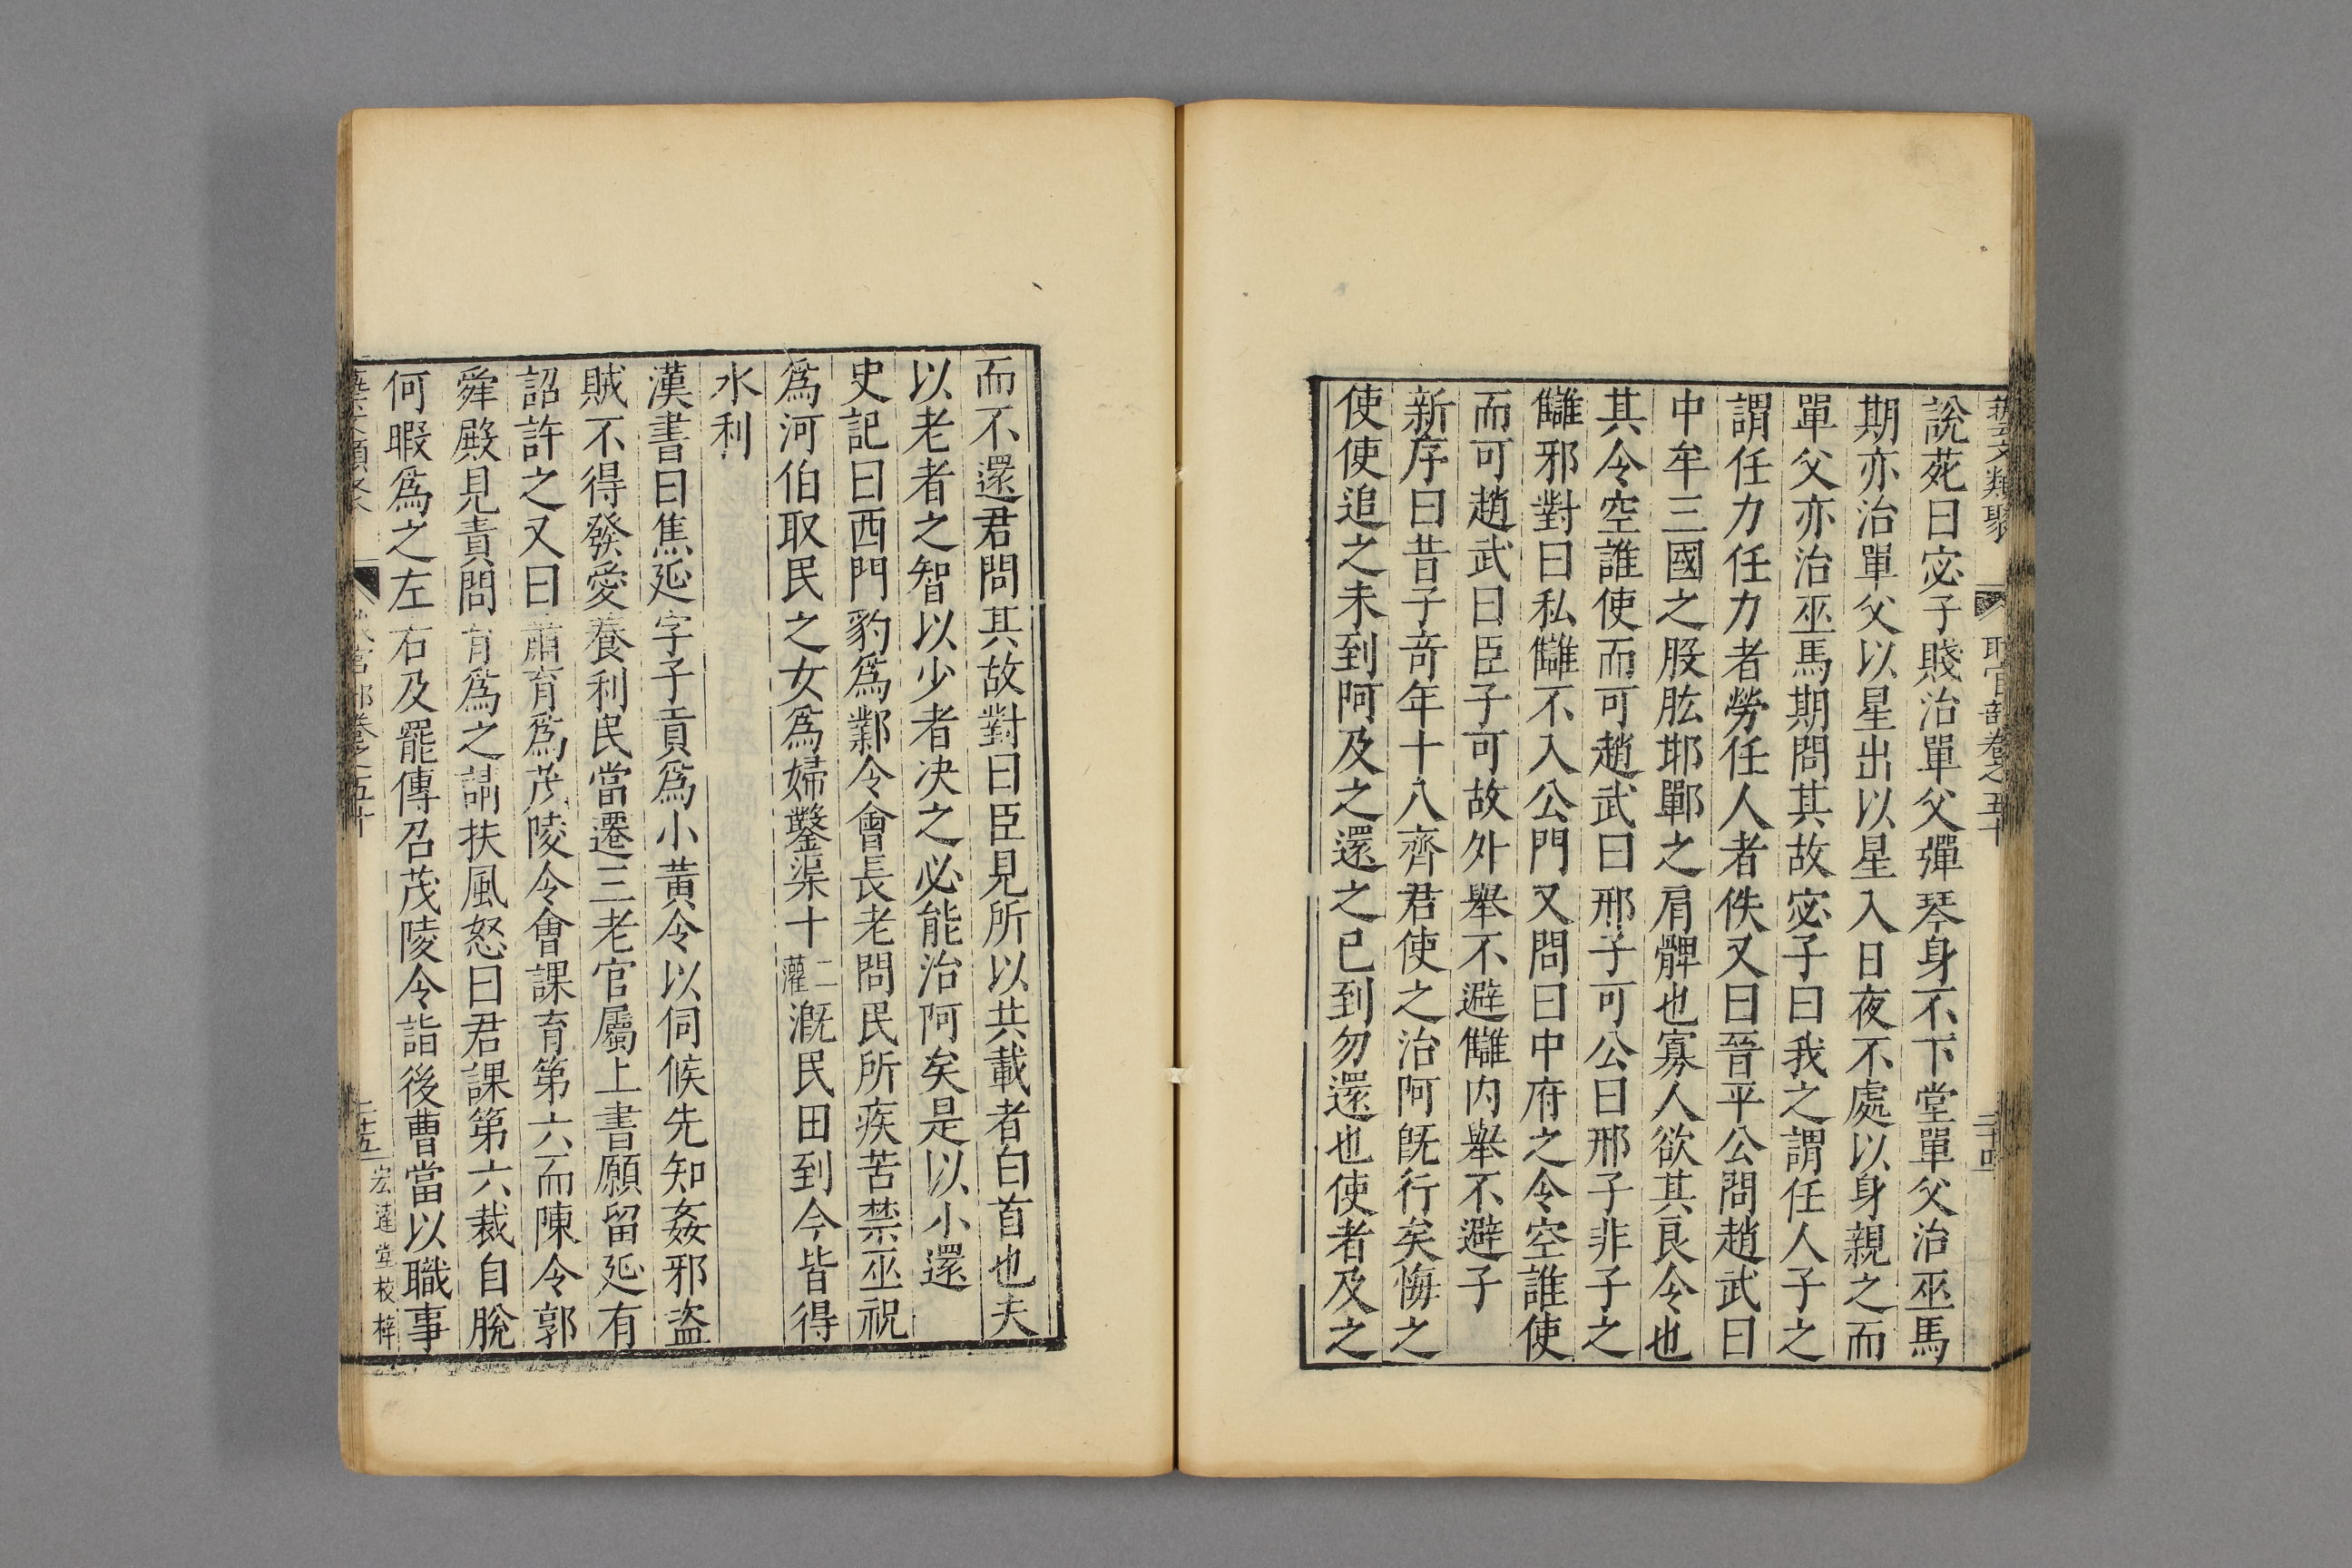 藝文類聚 職官部卷之五十 二十四
說苑曰宓子賤治單父彈琴身不下堂單父治巫馬
期亦治單父以星出以星入日夜不處以身親之而
單父亦治巫馬期問其故宓子曰我之謂任人子之
謂任力任力者勞任人者佚又曰晉平公問趙武曰
中牟三國之股肱邯鄲之肩髀也寡人欲其良令也
其令空誰使而可趙武曰邢子可公曰邢子非子之
讎邪對曰私讎不入公門又問曰中府之令空誰使
而可趙武曰臣子可故外舉不避讎内舉不避子
新序曰昔子奇年十八齊君使之治阿旣行矣悔之
使使追之未到阿及之還之已到勿還也使者及之
而不還君問其故對曰臣見所以共載者白首也夫
以老者之智以少者决之必能治阿矣是以小還
史記曰西門豹爲鄴令會長老問民所疾苦禁巫祝
爲河伯取民之女爲婦鑿渠十二灌漑民田到今皆得
水利
漢書曰焦延字子貢爲小黃令以伺候先知姦邪盗
賊不得發愛養利民當遷三老官屬上書願留延有
詔許之又曰蕭育爲茂陵令會課育第六而陳令郭
舜殿見責問育爲之請扶風怒曰君課第六裁自脫
何暇爲之左右及罷傳召茂陵令詣後曹當以職事
藝文類聚 職官部卷之五十 二十五 宏達堂校梓